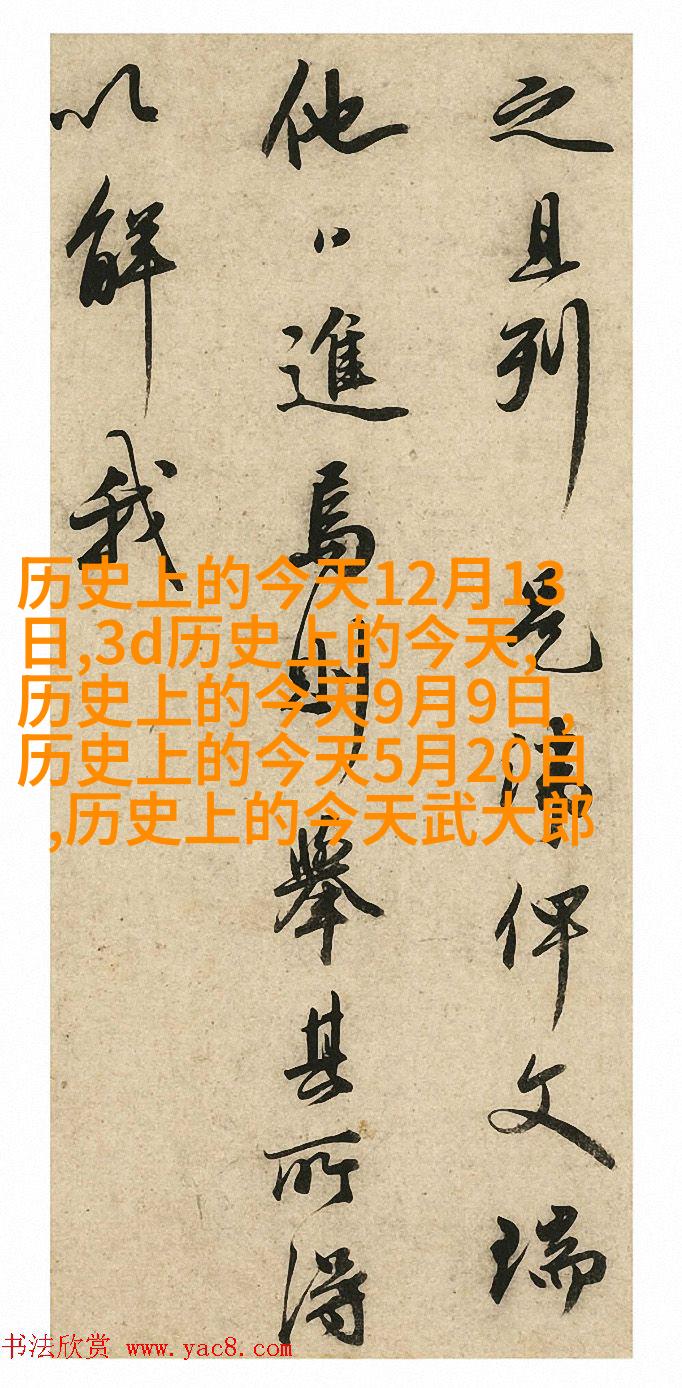 之且列是清俾文瑞
他日進焉則舉其所得
以解我
历史上的今天12月13
日,3d历史上的今天,
历史上的今天9月9日,
历史上的今天5月20日
,历史上的今天武大郎
书法欣赏 www.yac8.com